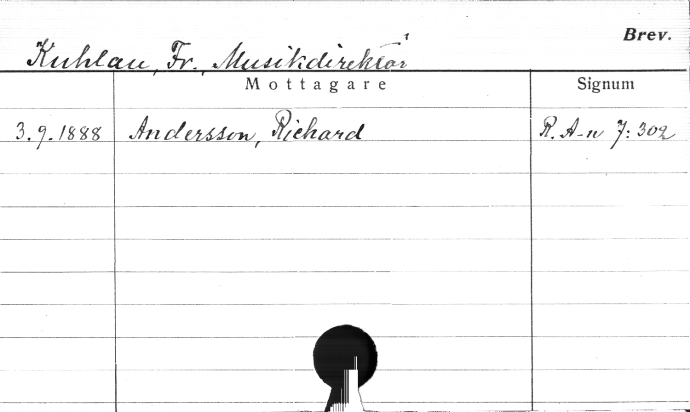 Brev.
Kuhlau, Fr., Musikdirektör
Mottagare Signum
3.9.1888 Andersson, Richard R. A-n 7:302